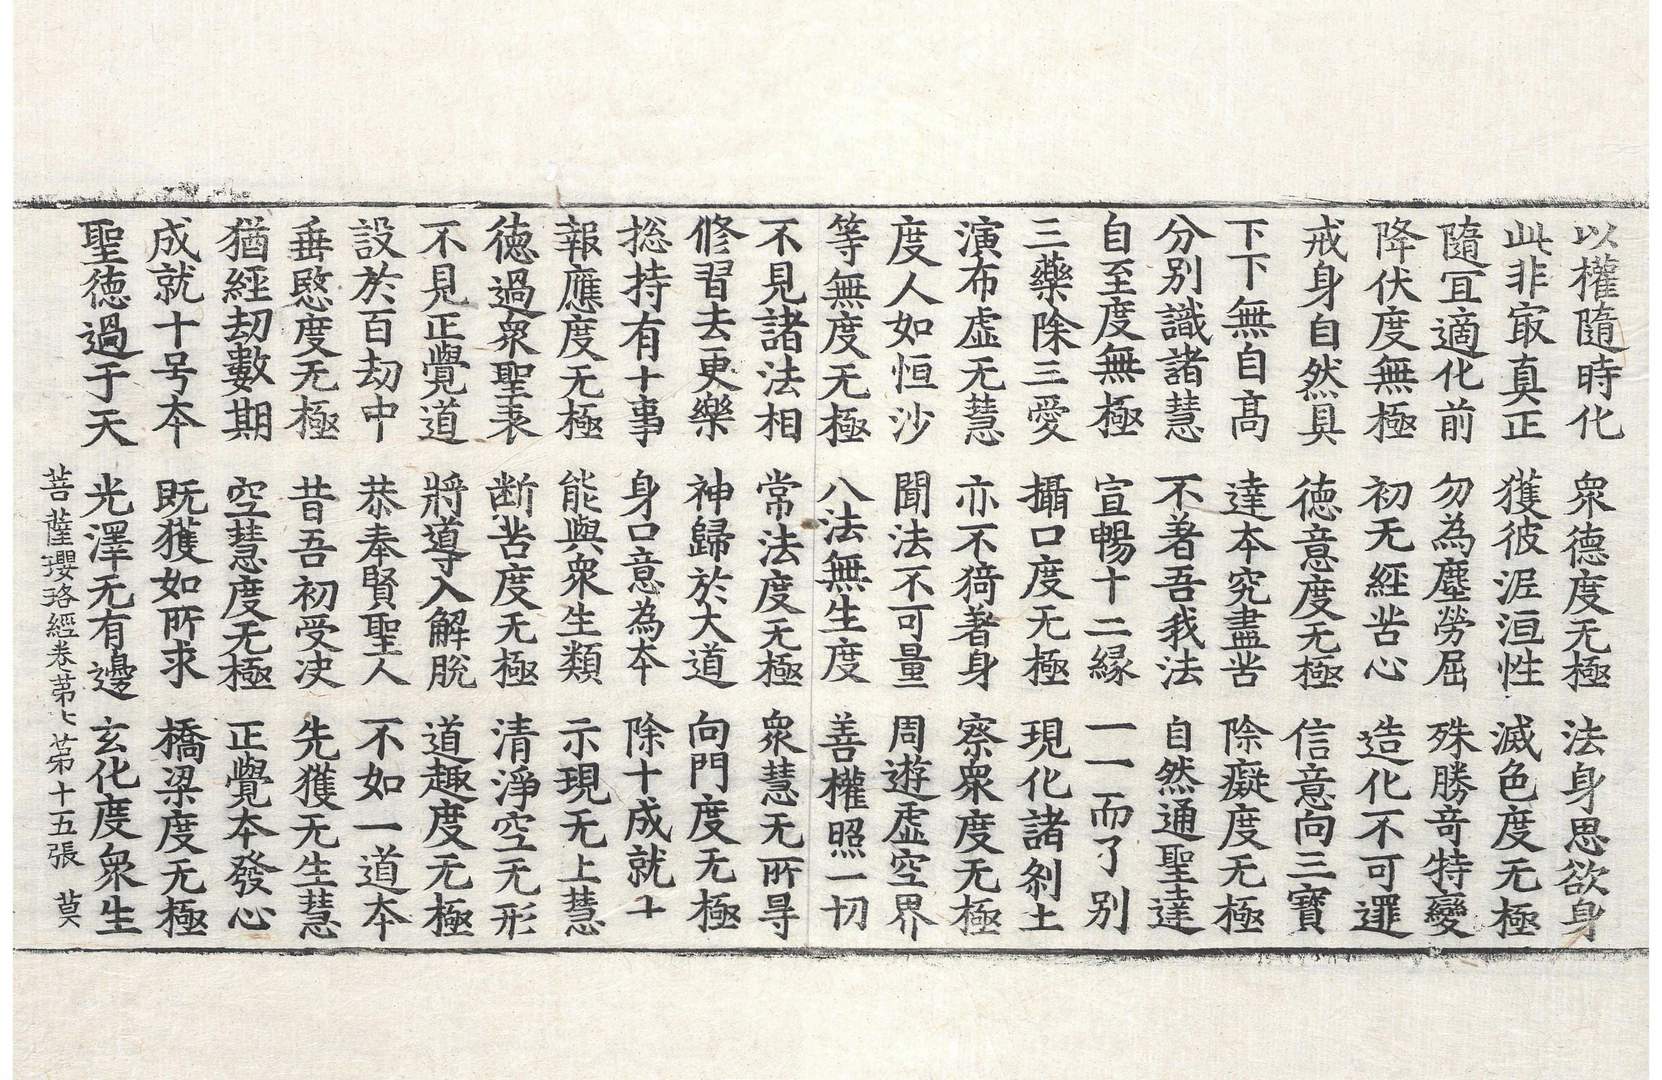 以權隨時化 衆德度无極 法身思欲身
此非㝡真正 獲彼泥洹性 滅色度无極
隨冝適化前 勿為塵勞屈 殊勝奇特變
降伏度無極 初无經苦心 造化不可
戒身自然具 德意度无極 信意向三寶
下下無自高 達本究盡苦 除癡度无極
分別識諸慧 不著吾我法 自然通聖達
自至度無極 宣暢十二緣 一一而了別
三藥除三愛 攝口度无極 現化諸刹土
演布虛无慧 亦不猗著身 察衆度无極
度人如恒沙 聞法不可量 周遊虛空界
等無度无極 八法無生度 善權照一切
不見諸法相 常法度无極 衆慧无所㝵
修習去更樂 神歸於大道 向門度无極
捴持有十事 身口意為本 除十成就十
報應度无極 能與衆生類 示現无上慧
德過衆聖表 断苦度无極 清淨空无形
不見正覺道 將導入解脫 道趣度无極
設於百劫中 恭奉賢聖人 不如一道本
垂愍度无極 昔吾初受决 先獲无生慧
猶經劫數期 空慧度无極 正覺本發心
成就十号本 既獲如所求 橋梁度无極
聖德過于天 光澤无有邊 玄化度衆生
菩薩瓔珞經卷苐七 苐十五張 莫